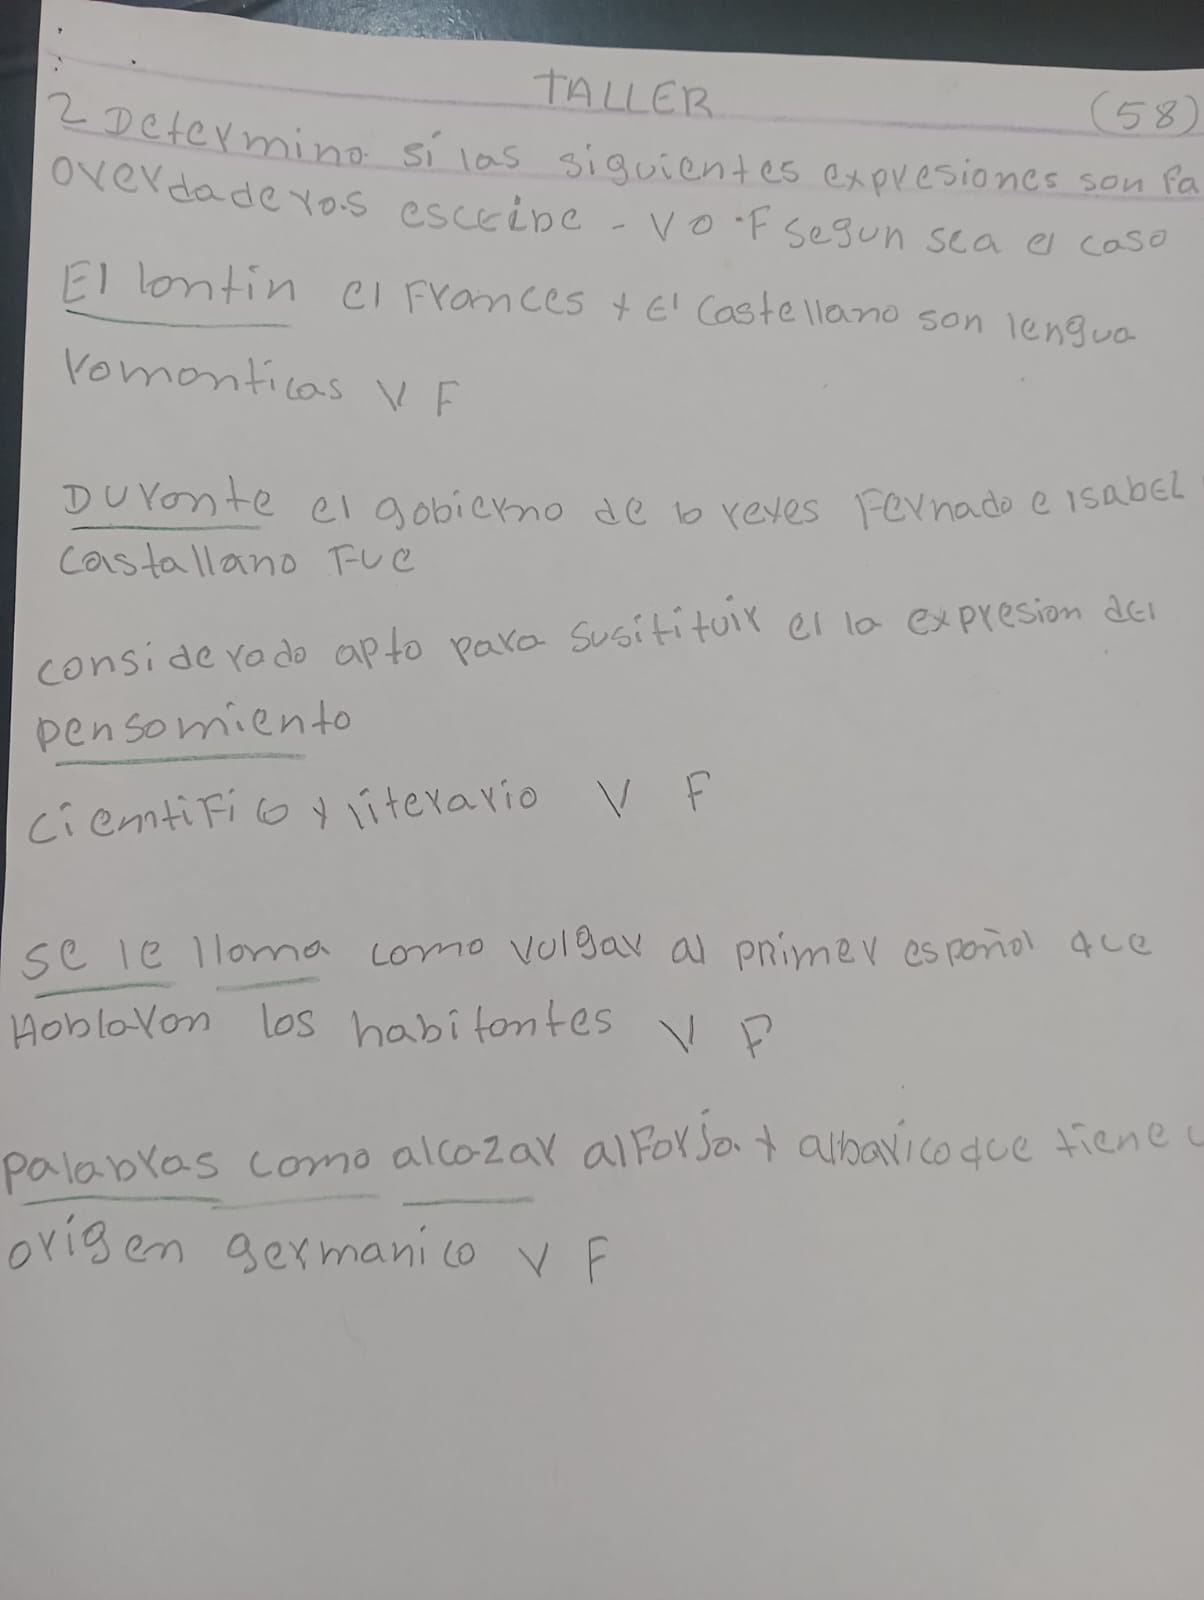 TALLER
(58)
2 Determino si las siguientes expresiones son Fa
o verdaderos escribe - V o F segun sea el caso
El lontin el Frances y El Castellano son lengua
romonticas V F
Duronte el gobierno de lo reyes Fernado e isabel
castallano Fue
considerado apto para susitituir el la expresion del
pensomiento
cientiFico y literario V F
se le lloma como vulgar al primer español que
Hoblaron los habitontes V F
palabras como alcazar alForja y albaricoque tiene
origen germanico V F